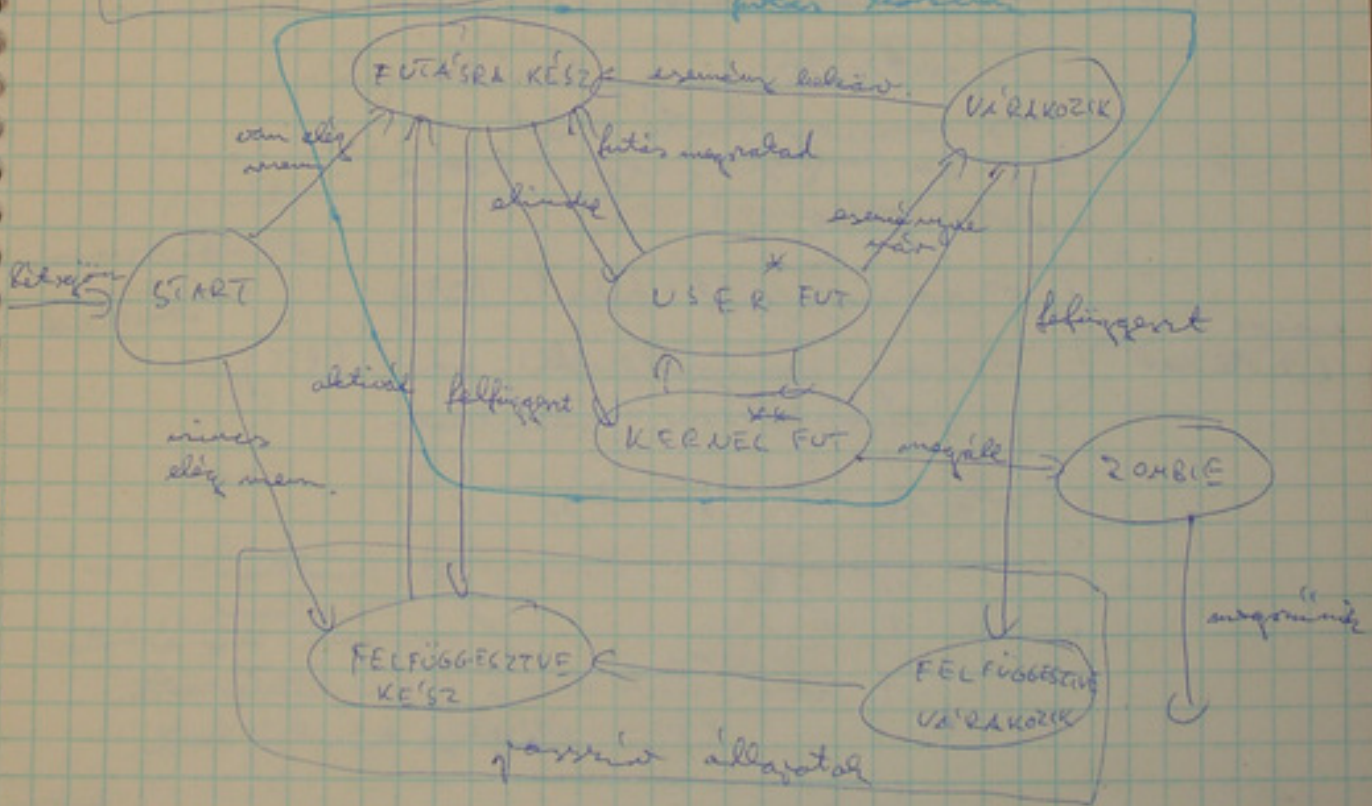 FUTÁSRA KÉSZ
esemény beköv.
VÁRAKOZIK
van elég
mem.
futás megszakad
elindul
eseményre
vár
létrejön
START
*
USER FUT
felfüggeszt
aktivál
felfüggeszt
**
KERNEL FUT
megáll
ZOMBIE
nincs
elég mem.
megszűnik
FELFÜGGESZTVE
KÉSZ
FELFÜGGESTVE
VÁRAKOZIK
passzív állapotok